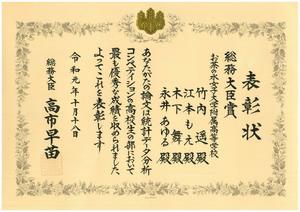 表彰状
総務大臣賞
お茶の水女子大学附属高等学校
竹内 遥殿
江本 もえ殿
木下 舞殿
永井 あゆる殿
あなたがたの論文は統計データ分析
コンペティションの高校生の部において
最も優秀な成績を収められました
よってこれを表彰します
令和元年十月十八日
総務大臣 高市早苗